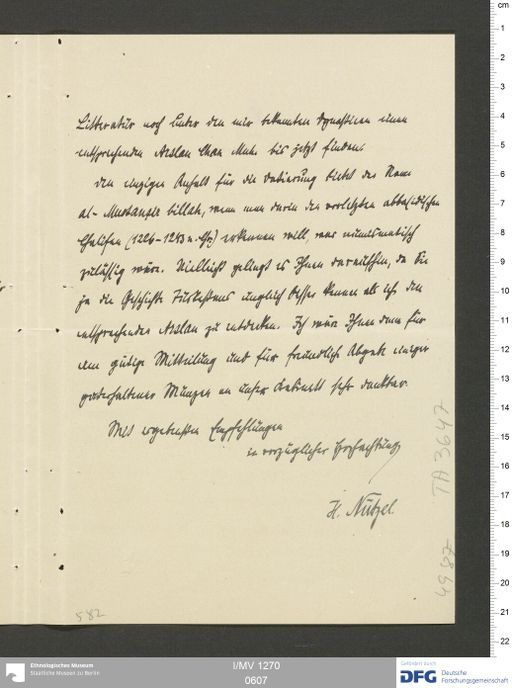 Litteratur noch unter den mir bekannten Dynastieen einen
entsprechenden Arslan Chan Muh. bis jetzt finden.
Den einzigen Anhalt für die Datierung bietet der Name
al-Mustanṣir billah, wenn man darin den vorletzten abbasidischen
Chalifen (1226-1243 n. Chr.) erkennen will, was numismatisch
zulässig wäre. Vielleicht gelingt es Ihnen daraufhin, da Sie
ja die Geschichte Turkestans ungleich besser kennen als ich den
entsprechenden Arslan zu entdecken. Ich wäre Ihnen dann für
eine gütige Mitteilung und für freundliche Abgabe einiger
guterhaltener Münzen an unser Kabinett sehr dankbar.
Mit ergebensten Empfehlungen
in vorzüglicher Hochachtung
H. Nützel.
TA 3647
4987
582
Ethnologisches Museum
Staatliche Museen zu Berlin
I/MV 1270
0607
Gefördert durch
DFG Deutsche
Forschungsgemeinschaft
cm
1
2
3
4
5
6
7
8
9
10
11
12
13
14
15
16
17
18
19
20
21
22